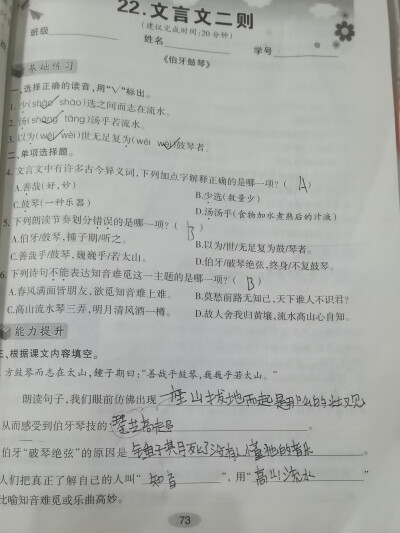 22.文言文二则
(建议完成时间:20分钟)
班级
姓名
学号
《伯牙鼓琴》
基础练习
一、选择正确的读音,用“√”标出。
1.少(shǎo shào)选之间而志在流水。
2.汤(shāng tāng)汤乎若流水。
3.以为(wéi wèi)世无足复为(wéi wèi)鼓琴者。
二、单项选择题。
4.文言文中有许多古今异义词,下列加点字解释正确的是哪一项?( A )
A.善哉(好,妙)
B.少选(数量少)
C.鼓琴(一种乐器)
D.汤汤乎(食物加水煮熟后的汁液)
5.下列朗读节奏划分错误的是哪一项?( B )
A.伯牙/鼓琴,锺子期/听之。
B.以为/世/无足复为鼓/琴者。
C.善哉乎/鼓琴,巍巍乎/若太山。
D.伯牙/破琴绝弦,终身/不复鼓琴。
6.下列诗句不能表达知音难觅这一主题的是哪一项?( B )
A.春风满面皆朋友,欲觅知音难上难。
B.莫愁前路无知己,天下谁人不识君?
C.高山流水琴三弄,明月清风酒一樽。
D.故人舍我归黄壤,流水高山心自知。
能力提升
三、根据课文内容填空。
方鼓琴而志在太山,锺子期曰:“善哉乎鼓琴,巍巍乎若太山。”
朗读句子,我们眼前仿佛出现 一座山拔地而起是那么的壮观
从而感受到伯牙琴技的 高超 。
伯牙“破琴绝弦”的原因是 锺子期死了没有人懂他的音乐 。
人们把真正了解自己的人叫“ 知音 ”,用“ 高山流水 ”
比喻知音难觅或乐曲高妙。
73